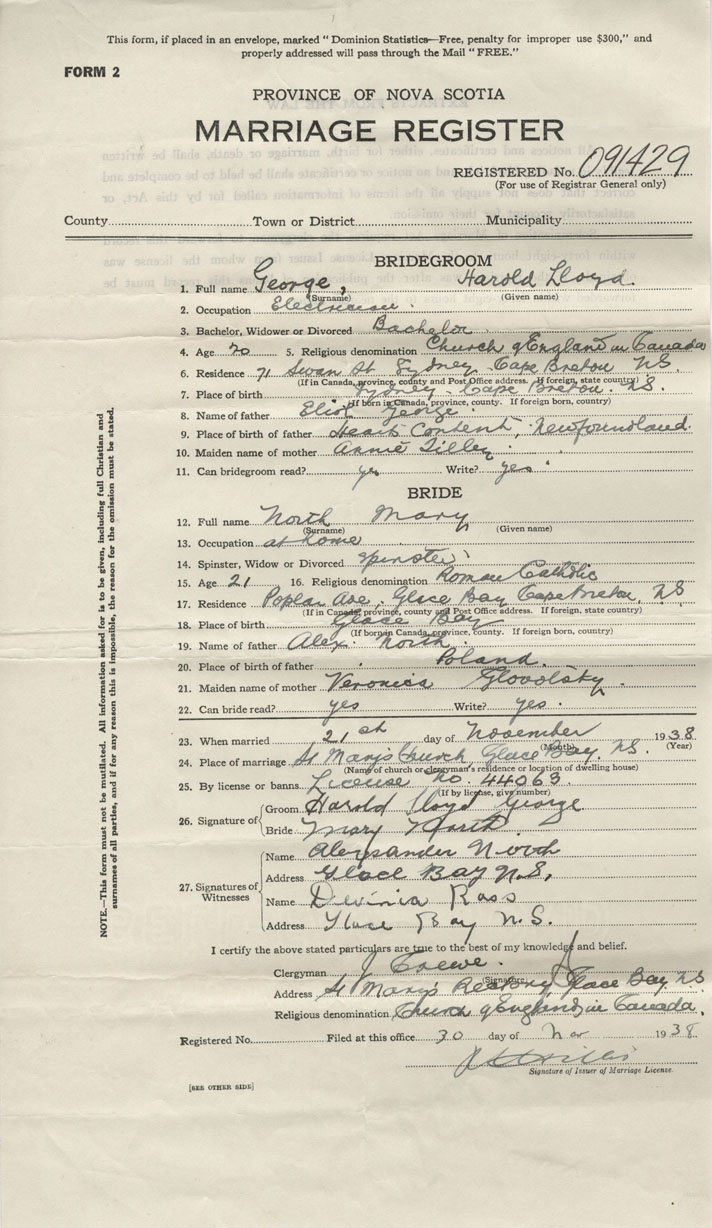 This form, if placed in an envelope, marked "Dominion Statistics—Free, penalty for improper use $300," and
properly addressed will pass through the Mail "FREE."
FORM 2
PROVINCE OF NOVA SCOTIA
MARRIAGE REGISTER
REGISTERED No. 091429
(For use of Registrar General only)
County Town or District Municipality
BRIDEGROOM
1. Full name George, Harold Lloyd
(Surname) (Given name)
2. Occupation Electrician
3. Bachelor, Widower or Divorced Bachelor
4. Age 20 5. Religious denomination Church of England in Canada
6. Residence 71 Swan St Sydney Cape Breton NS.
(If in Canada, province, county and Post Office address. If foreign, state country)
7. Place of birth Sydney Cape Breton N.S.
(If born in Canada, province, county. If foreign born, country)
8. Name of father Eliot George
9. Place of father Hearts Content, Newfoundland.
10. Maiden name of mother Annie Tilley
11. Can bridegroom read? yes Write? yes
BRIDE
12. Full name North Mary
(Surname) (Given name)
13. Occupation at home
14. Spinster, Widow or Divorced Spinster
15. Age 21 16. Religious denomination Roman Catholic
17. Residence Poplar Ave, Glace Bay Cape Breton, NS
(If in Canada, province, county and Post Office address. If foreign, state country)
18. Place of birth Glace Bay
(If born in Canada, province, county. If foreign born, country)
19. Name of father Alex North
20. Place of birth of father Poland.
21. Maiden name of mother Veronica
22. Can bride read? yes Write? yes.
23. When married 21st day of November 1938
(Month) (Year)
24. Place of marriage St Mary's Church, Glace Bay, N.S.
(Name of church or clergyman's residence or location of dwelling house)
25. By license or banns License No. 44063
(If by license, give number)
26. Signature of
Groom Harold Lloyd George
Bride Mary North
27. Signatures of Witnesses
Name Alexsander North
Address Glace Bay N.S,
Name Ross
Address Glace Bay N.S.
I certify the above stated particulars are true to the best of my knowledge and belief.
Clergyman
(Signature)
Address St Mary's Rectory, Glace Bay NS
Religious denomination Church of England in Canada,
Registered No. Filed at this office 30 day of Nov 1938
Signature of Issuer of Marriage License.
[SEE OTHER SIDE]
NOTE.—This form must not be mutilated. All information asked for is to be given, including full Christian and
surnames of all parties, and if for any reason this is impossible, the reason for the omission must be stated.